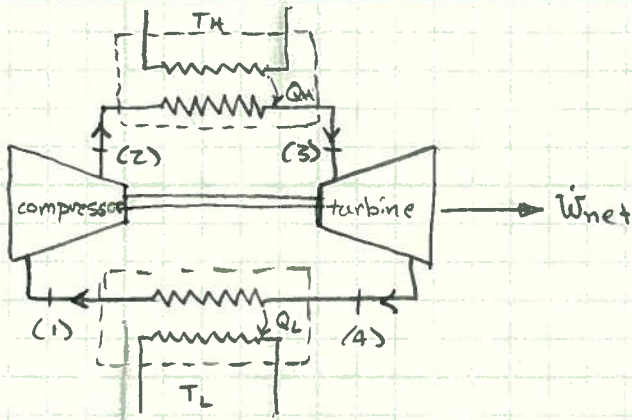 TH
QH
(2)
(3)
compressor
turbine
Ẇnet
(1)
QL
(4)
TL